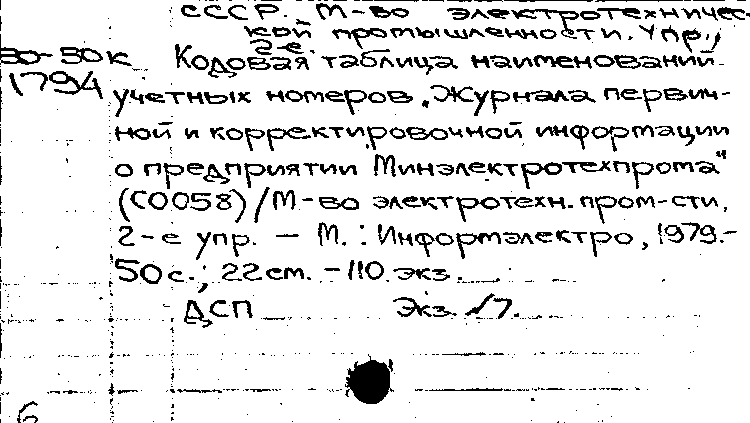 СССР. М-во электротехничес-
кой промышленности. Упр.,
2-е.
30-30к Кодовая таблица наименований
1794 учетных номеров „Журнала первич-
ной и корректировочной информации
о предприятии Минэлектротехпрома"
(С0058) / М-во электротехн. пром-сти,
2-е упр. — М.: Информэлектро, 1979.-
50 с.; 22 см. - 110 экз.
ДСП Экз. 17.
6